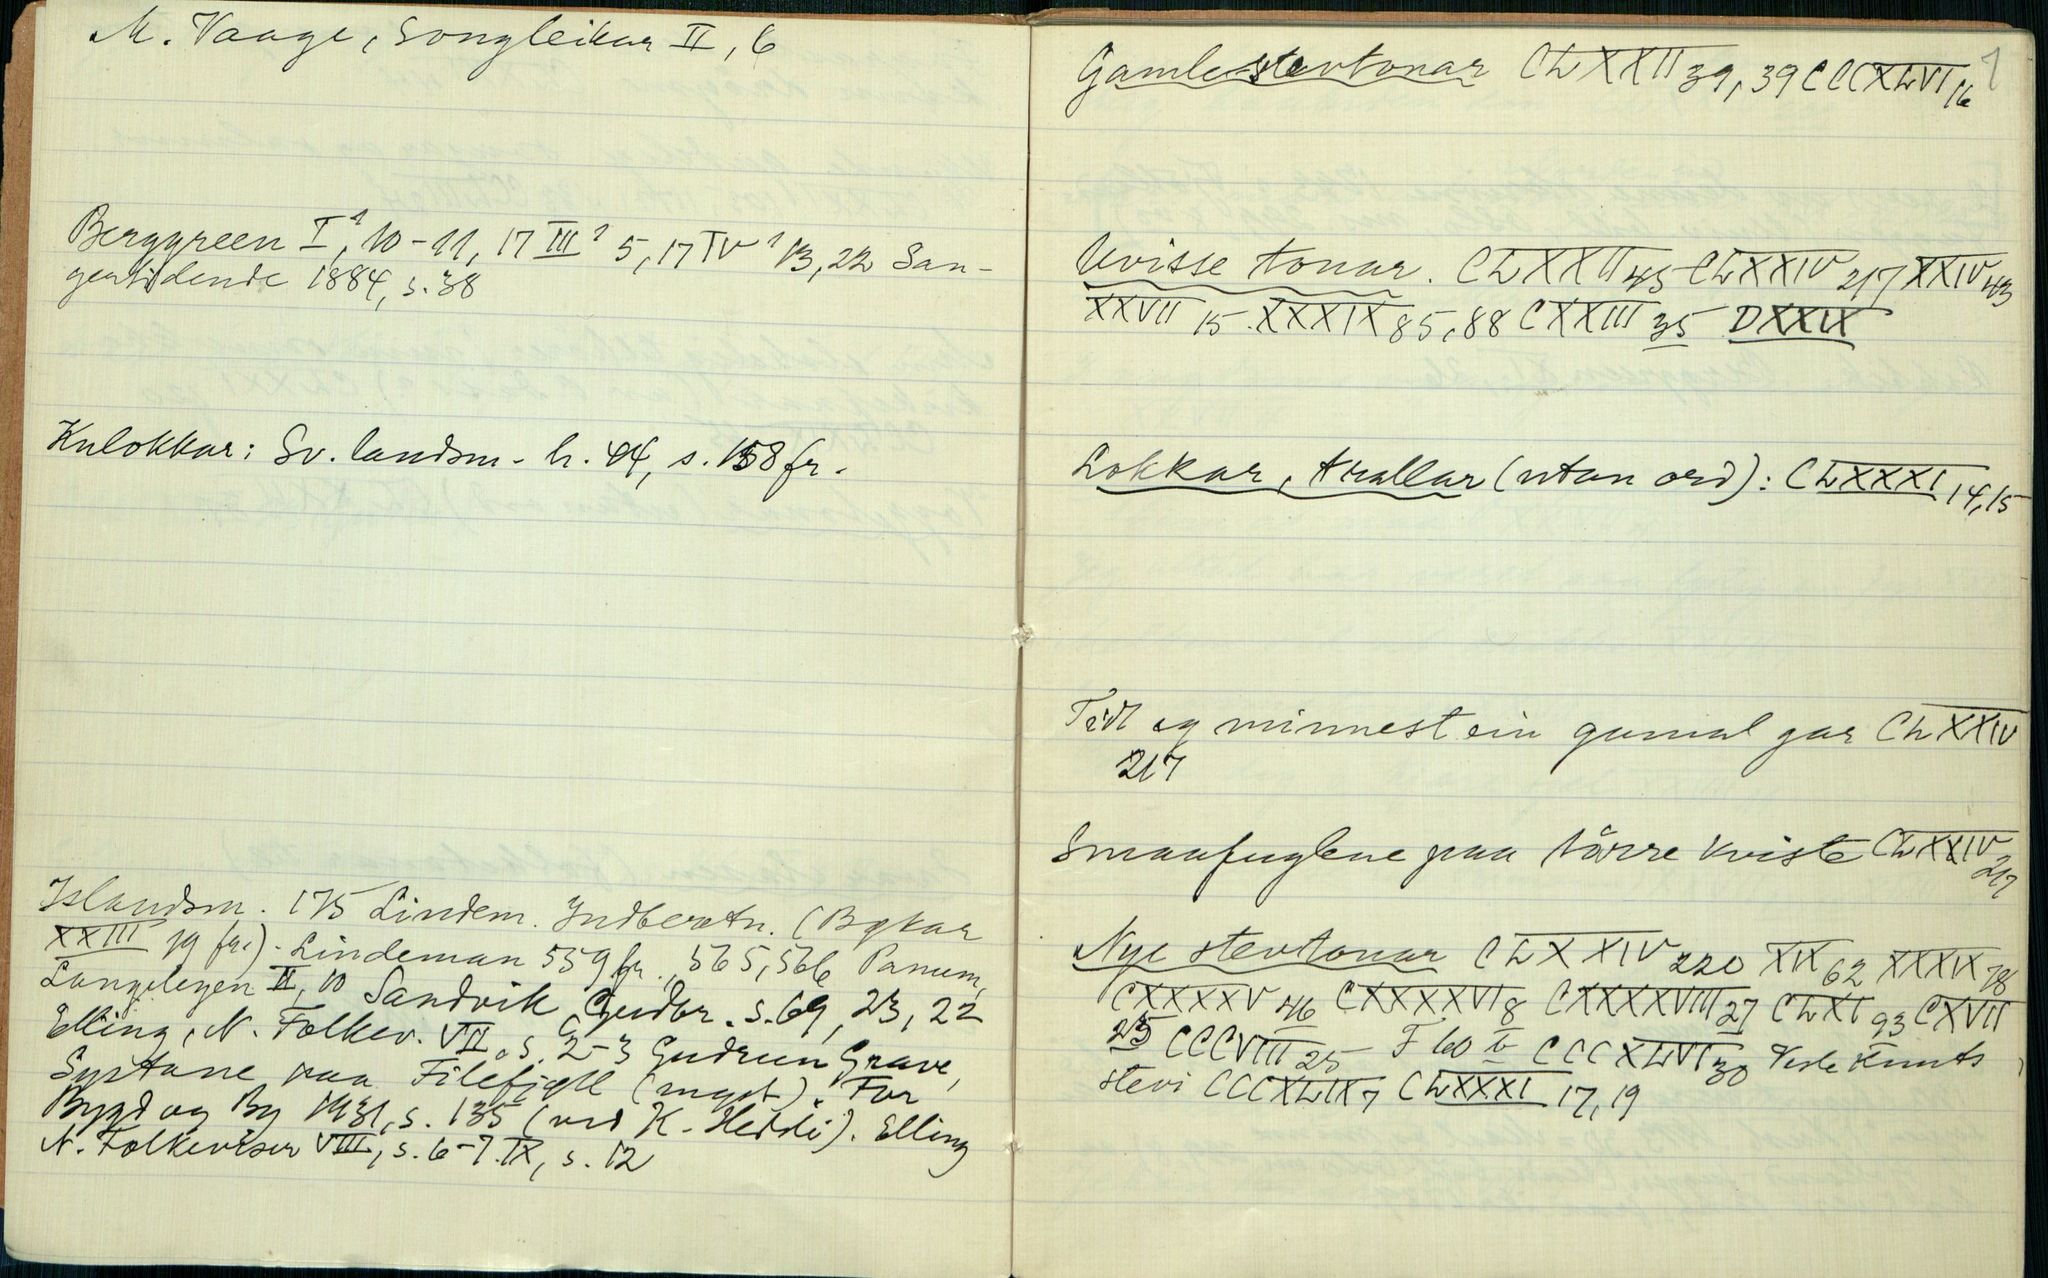 M. Vaage, Songleikar II, 6
Berggreen I¹, 10-11, 17 III¹ 5, 17 IV¹ 13, 22 San-
gertidende 1884, s. 38
Kulokkar: Sv. landsm. h. 44, s. 158 fr.
Islandsm. 175 Lindem. Indberetn. (Bykar
XXIII 19 fr.). Lindeman 559 fr., 565, 566 Panum,
Langelegen II, 10 Sandvik Gudbr. s. 69, 23, 22
Elling, N. Folkev. VII, s. 2-3 Gudrun Grave,
Systane paa Filefjell (mgst). For
Bygd og By 1931, s. 135 (ved K. Heddi). Elling
N. Folkeviser VIII, s. 6-7. IX, s. 12
1
Gamle stevtonar CLXXII 39, 39 CCCXLVI 16
Uvisse tonar. CLXXII 45 CLXXIV 217 XXIV 43
XXVII 15. XXXIX 85, 88 CXXIII 35 DXXIX
Lokkar, trallar (utan ord): CLXXXI 14, 15
Tidt eg minnest ein gamal gar CLXXIV
217
Smaafuglene paa törre kviste CLXXIV
217
Nye stevtonar CLXXIV 220 XIX 62 XXXIX 78
CXXXXV 46 CXXXXVI 8 CXXXXVIII 27 CLXI 93 CXVII
25 CCCVIII 25 F 60 CCCXLVI 30 Vesle Knuts
stevi CCCXLIX 7 CLXXXI 17, 19